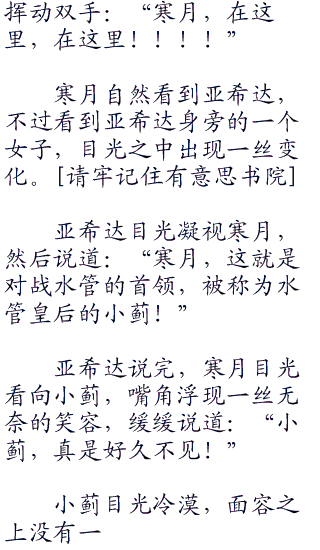 挥动双手：“寒月，在这
里，在这里！！！！”
寒月自然看到亚希达，
不过看到亚希达身旁的一个
女子，目光之中出现一丝变
化。[请牢记住有意思书院]
亚希达目光凝视寒月，
然后说道：“寒月，这就是
对战水管的首领，被称为水
管皇后的小蓟！”
亚希达说完，寒月目光
看向小蓟，嘴角浮现一丝无
奈的笑容，缓缓说道：“小
蓟，真是好久不见！”
小蓟目光冷漠，面容之
上没有一